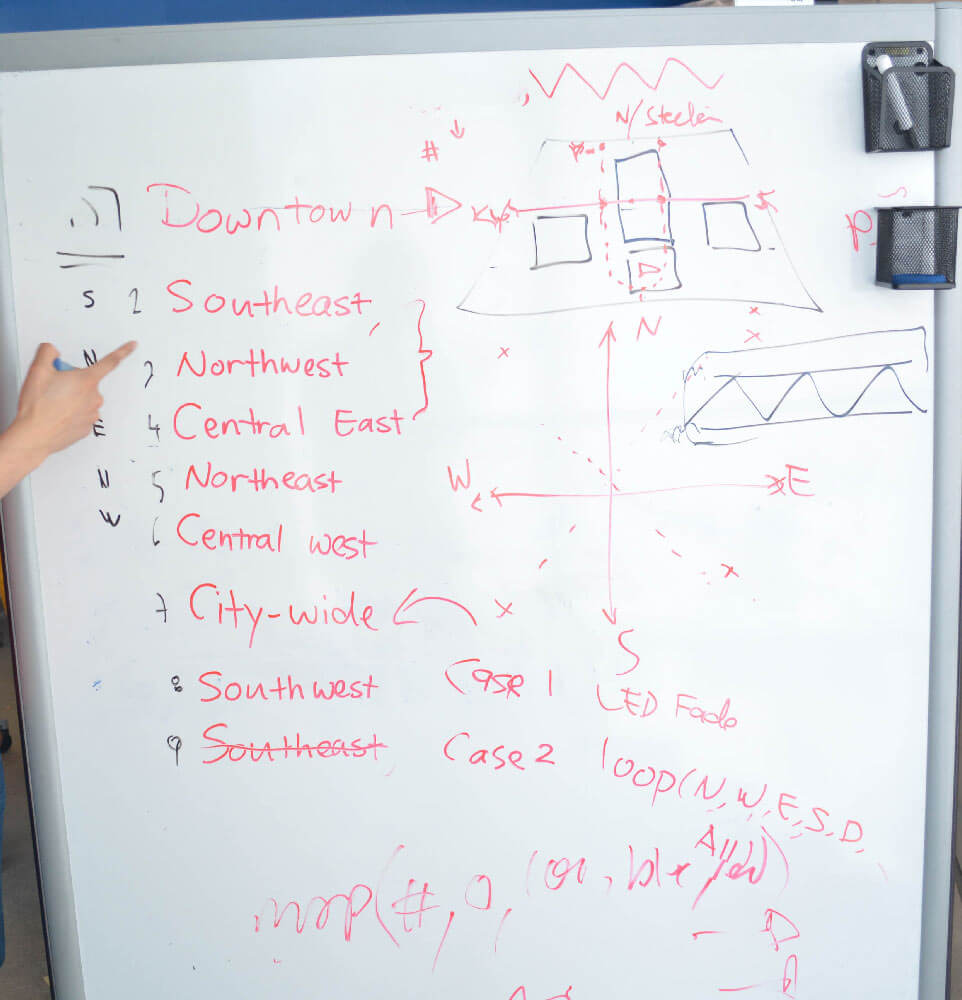 N/Steeles
#
Downtown
S 2 Southeast
N
N Northwest
E 4 Central East
N 5 Northeast
W 6 Central west
7 City-wide
8 Southwest
9 Southeast
W E
S
Case 1 LED Fade
Case 2 loop(N, W, E, S, D,
All)
map(#, 0,